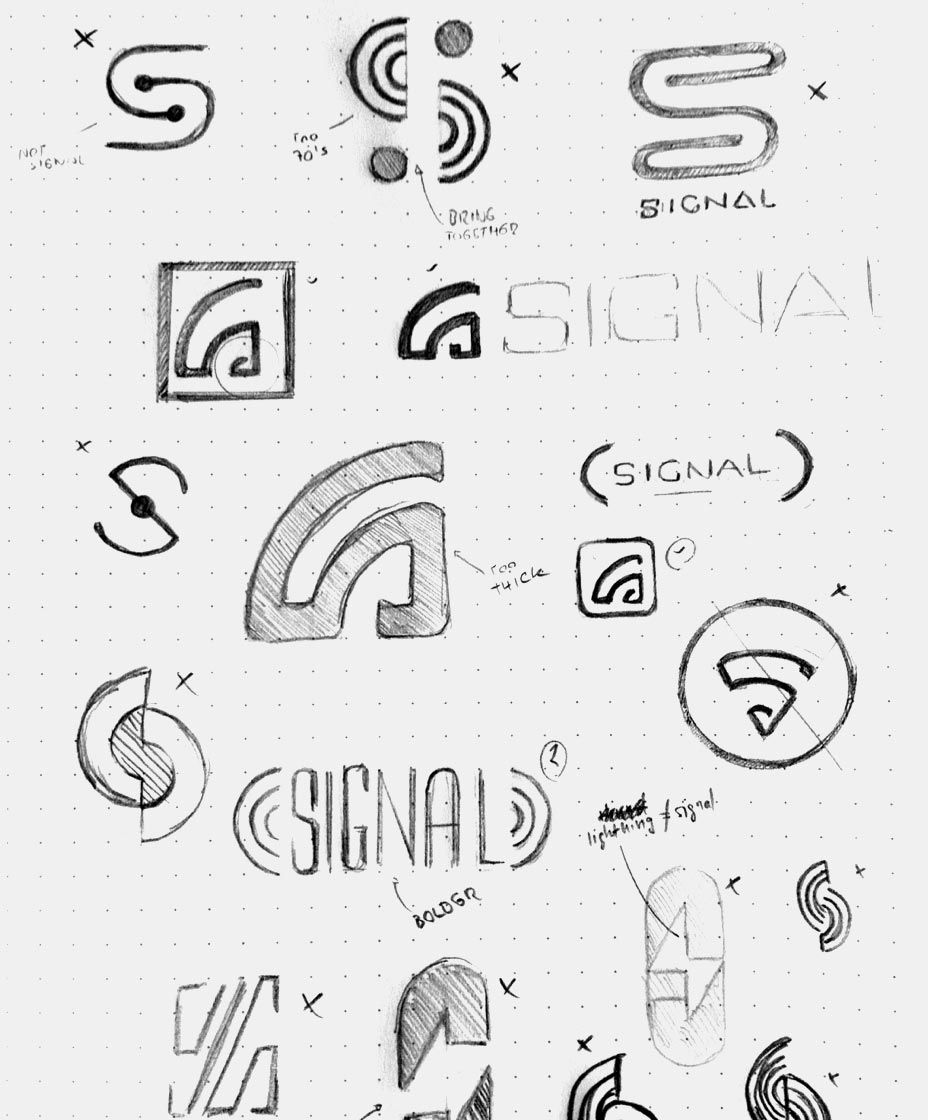 NOT
SIGNAL
TOO
70's
BRING
TOGETHER
SIGNAL
SIGNAL
SIGNAL
TOO
THICK
SIGNAL
BOLDER
lightning ≠ signal